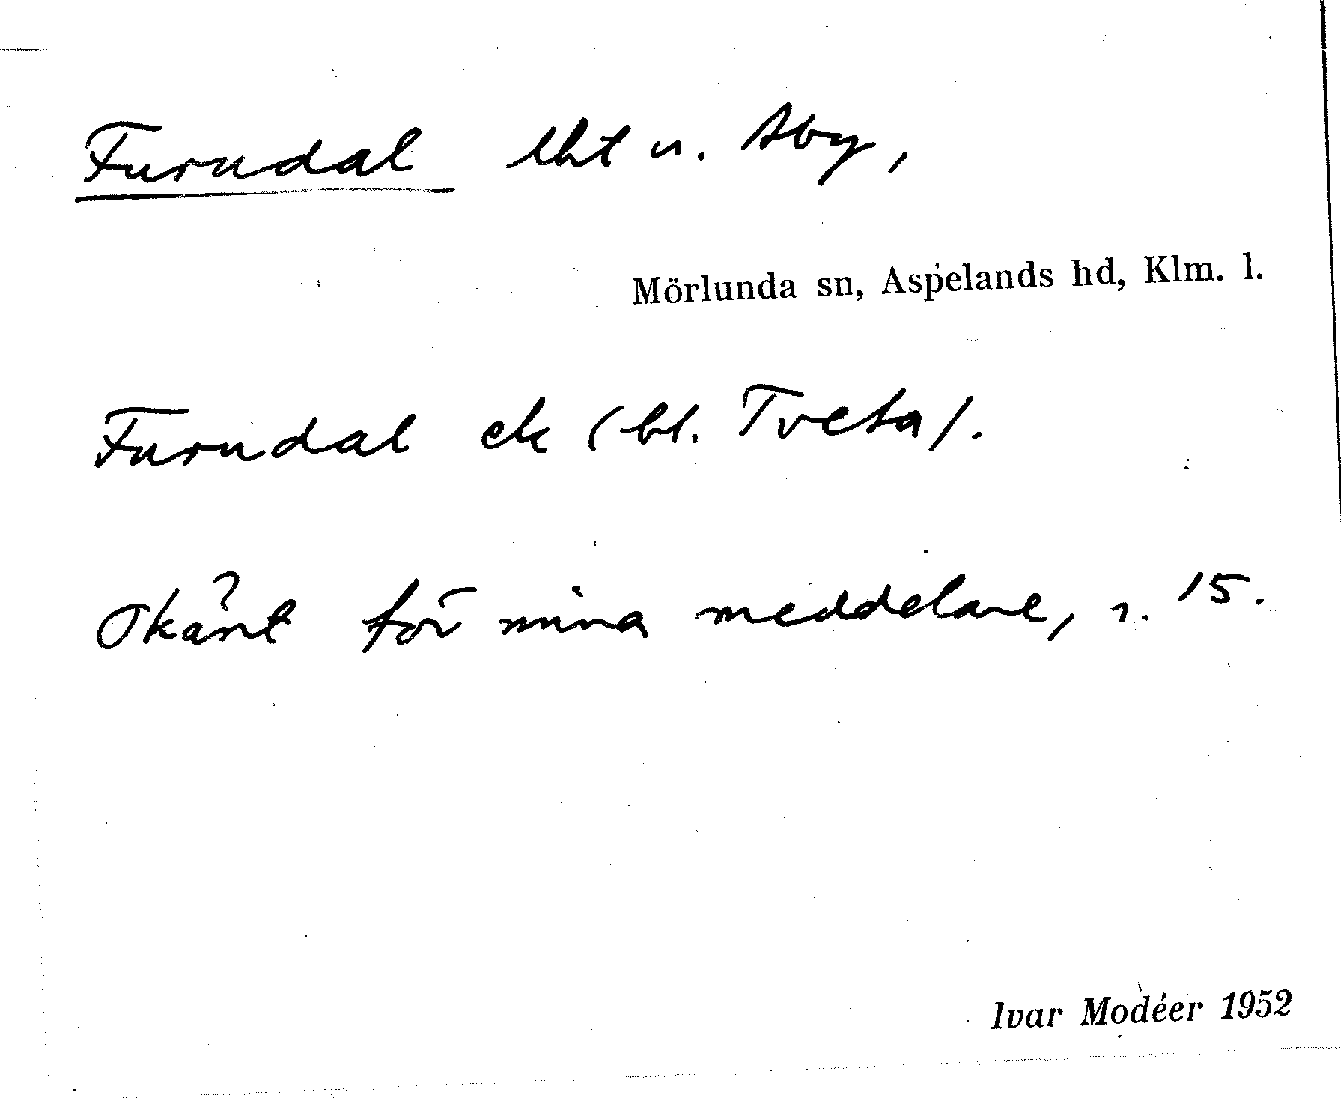 Furudal lht u. Åby,
Mörlunda sn, Aspelands hd, Klm. l.
Furudal ek (bl. Tveta).
Okänt för mina meddelare, s. 15.
Ivar Modéer 1952